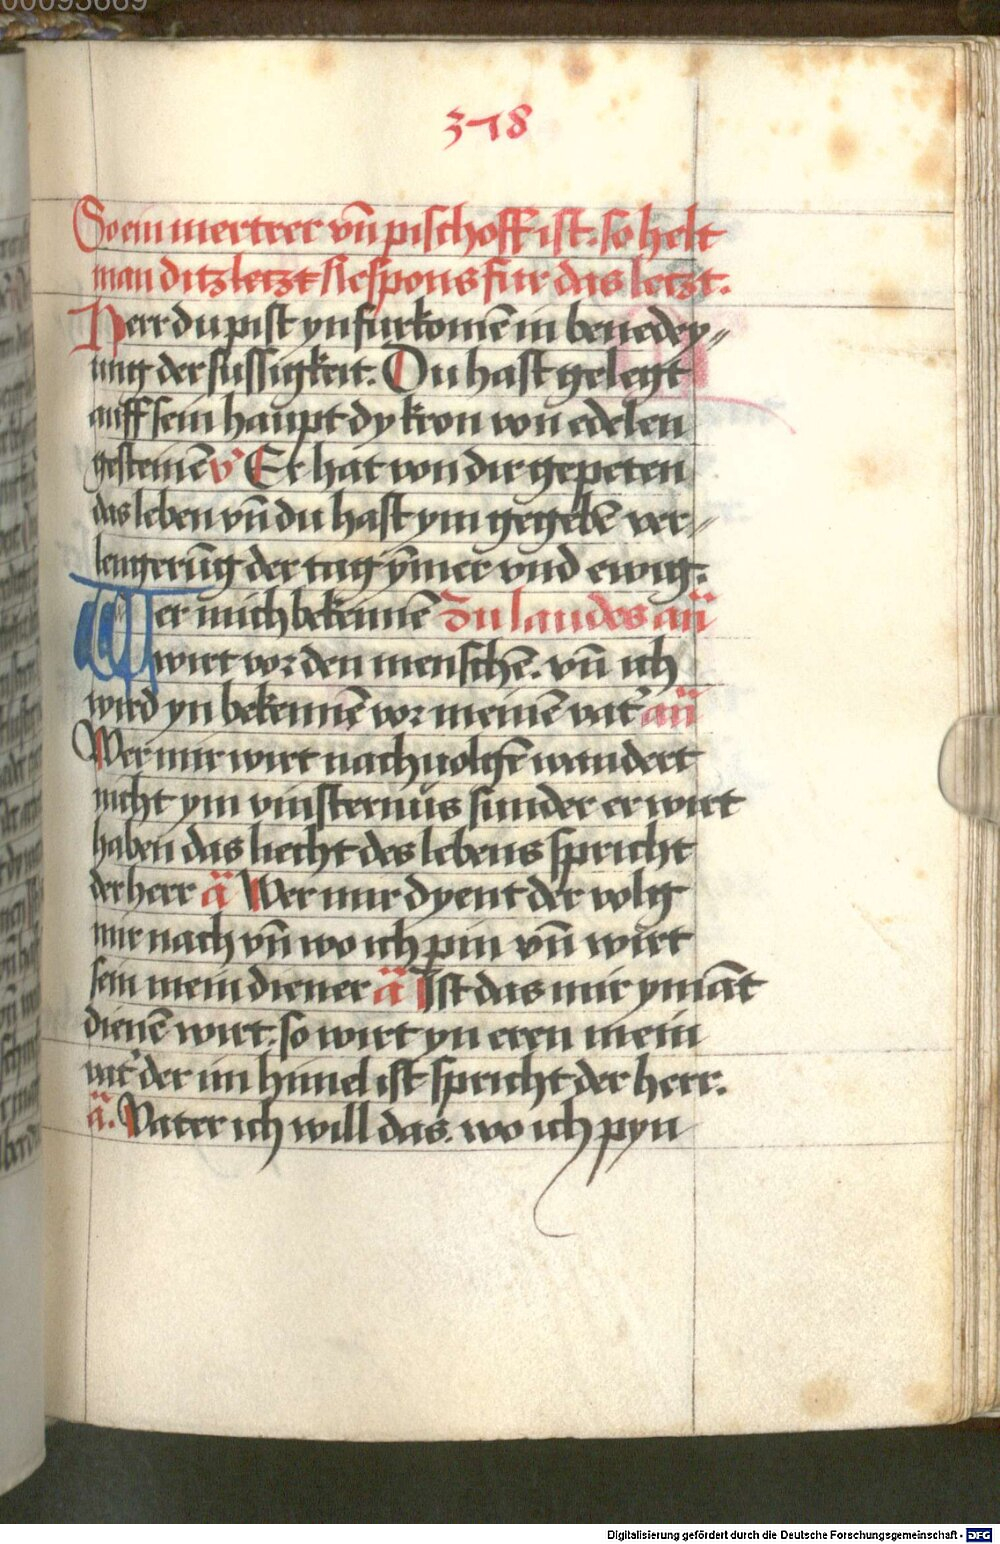 00093669
378
So ein mertrer vn̄ pischoff ist. so helt
man ditz letzt Respons fur das letzt.
Herr du pist yn furkomē in benedey〃
ung der sussigkeit. Du hast gelegt
auff sein haupt dy kron von edelen
gesteinē v̓ Er hat von dir gepeten
das leben vn̄ du hast ym gegebē ver〃
lengerūg der tag ȳmer vnd ewig.
Wer mich bekennē Zu laudes an̄
wirt vor den menschē. vn̄ ich
wird yn bekennē vor meinē vat̓ an̄
Wer mir wirt nachuolgē wandert
nicht ym vinsternus sunder er wirt
haben das liecht des lebens spricht
der herr ā Wer mir dyent der volg
mir nach vn̄ wo ich pin vn̄ wirt
sein mein diener ā Ist das mir ymāt
dienē wirt. so wirt yn eren mein
vat̓ der im himel ist spricht der herr.
ā. Vater ich will das. wo ich pyn
Digitalisierung gefördert durch die Deutsche Forschungsgemeinschaft - DFG